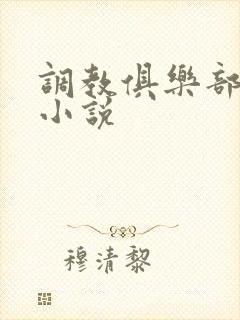 調教俱樂部
小說
穆清黎